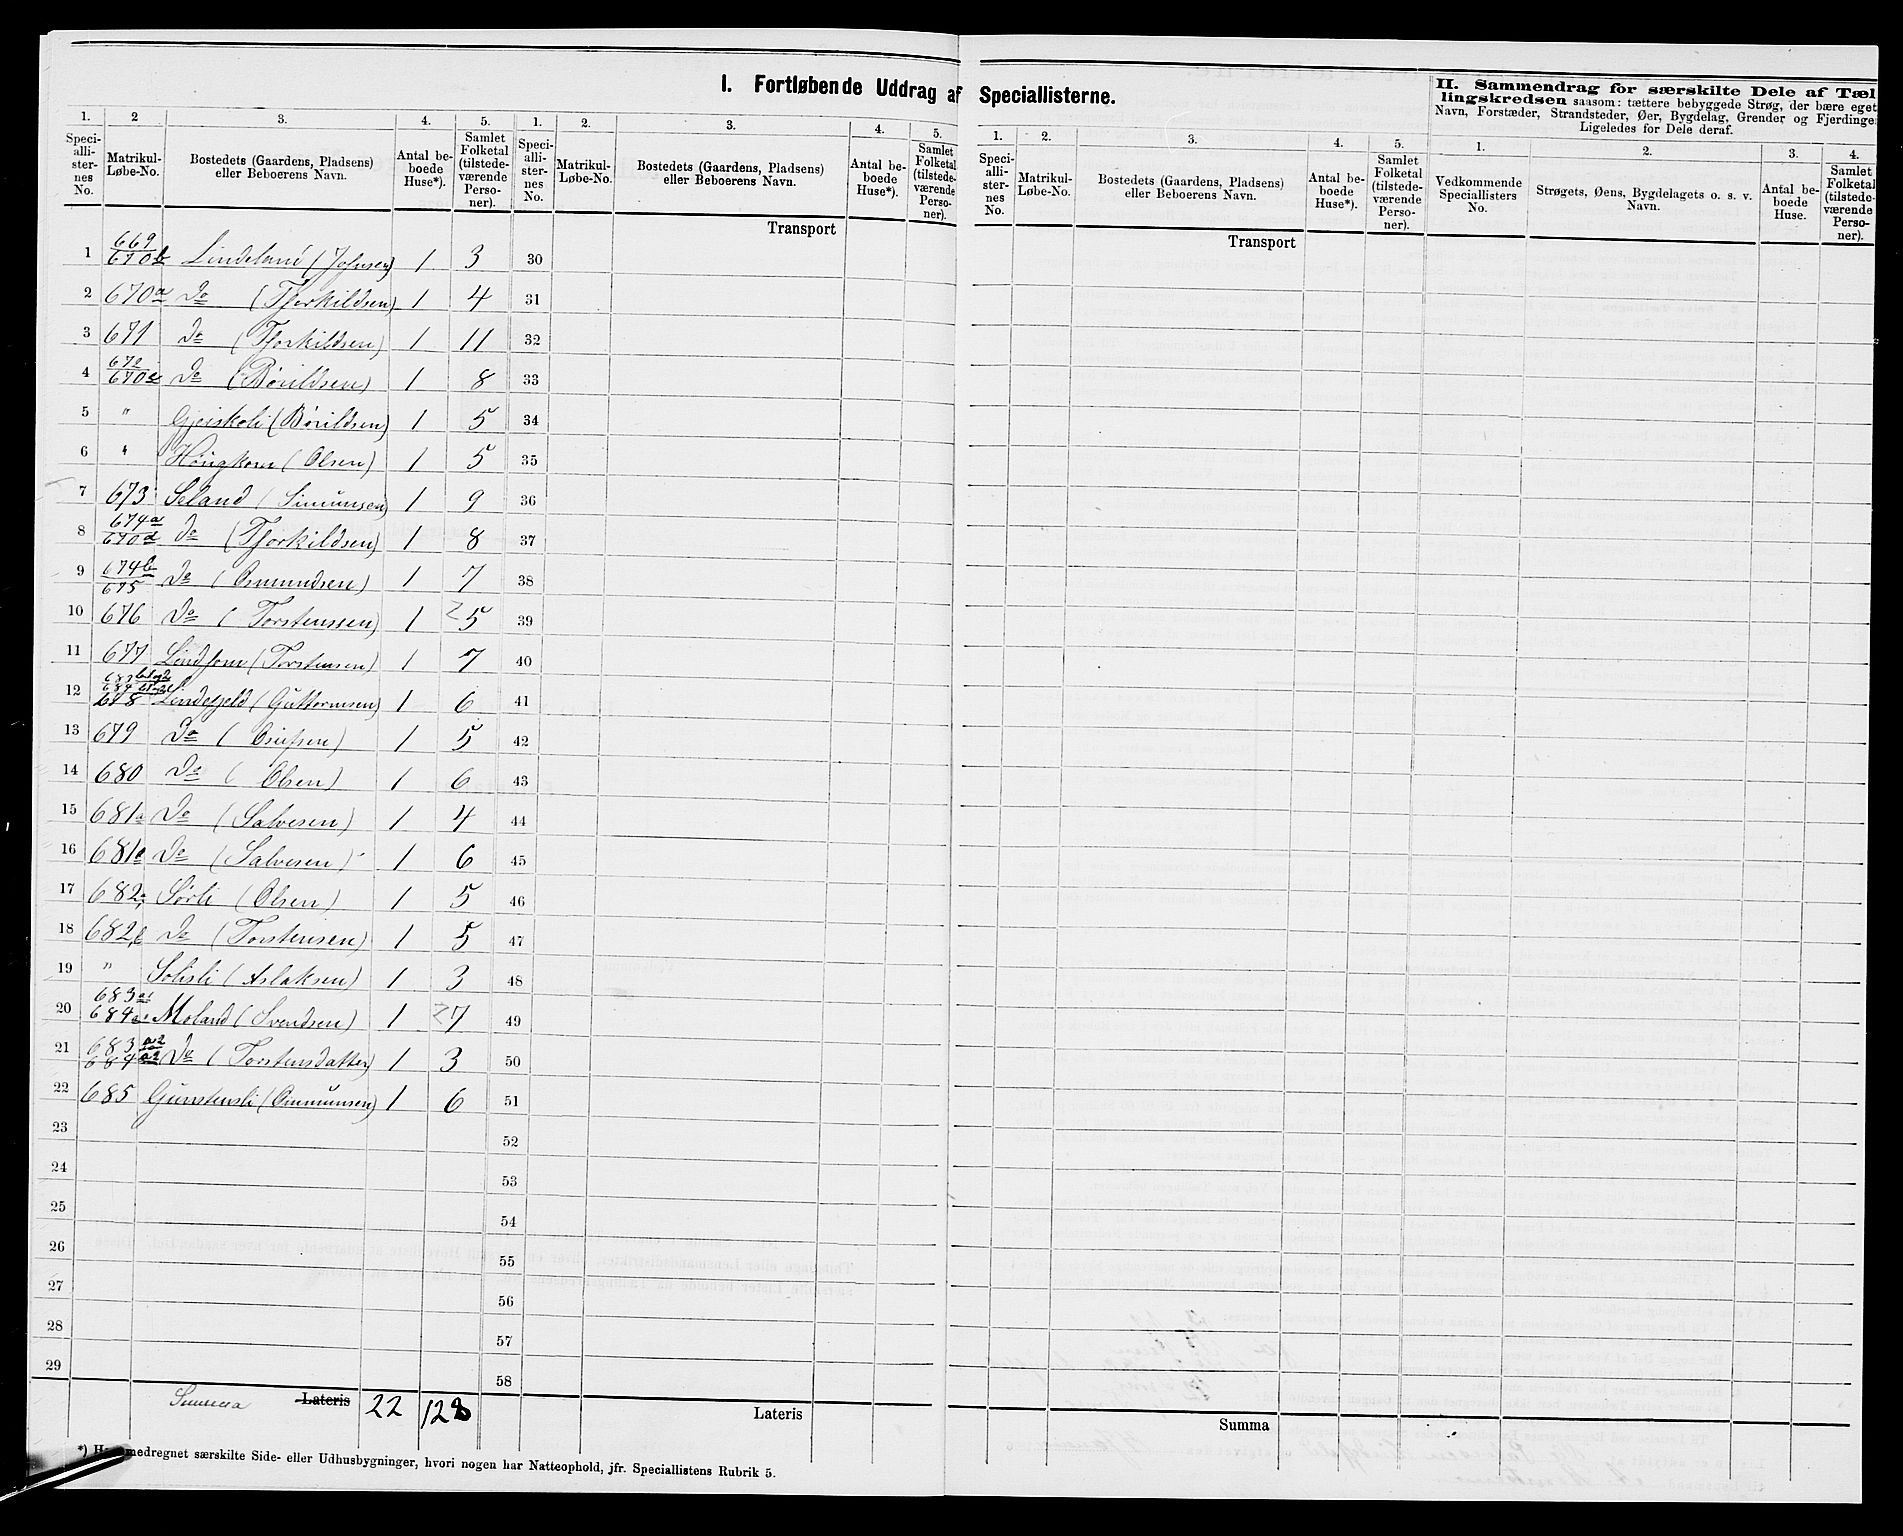 I. Fortløbende Uddrag af Speciallisterne.
II. Sammendrag for særskilte Dele af Tællingskredsen saasom: tættere bebyggede Strøg, der bære eget
Navn, Forstæder, Strandsteder, Øer, Bygdelag, Grender og Fjerdinge
Ligeledes for Dele deraf.
1. 2 3. 4. 5. 1. 2. 3. 4. 5. 1. 2. 3. 4. 5. 1. 2. 3. 4.
Speciallisternes No. Matrikul-Løbe-No. Bostedets (Gaardens, Pladsens) eller Beboerens Navn. Antal beboede Huse*). Samlet Folketal (tilstedeværende Personer).
Speciallisternes No. Matrikul-Løbe-No. Bostedets (Gaardens, Pladsens) eller Beboerens Navn. Antal beboede Huse*). Samlet Folketal (tilstedeværende Personer).
Speciallisternes No. Matrikul-Løbe-No. Bostedets (Gaardens, Pladsens) eller Beboerens Navn. Antal beboede Huse*). Samlet Folketal (tilstedeværende Personer).
Vedkommende Speciallisters No. Strøgets, Øens, Bygdelagets o. s. v. Navn. Antal beboede Huse. Samlet Folketal (tilstedeværende Personer).
Transport Transport
1 669 670b Lindeland (Johnsen) 1 3 30
2 670a Do (Tjorkildsen) 1 4 31
3 671 do (Tjorkildsen) 1 11 32
4 672 670c Do (Bórildsen) 1 8 33
5 " Gjeiskeli (Bórildsen) 1 5 34
6 " (Olsen) 1 5 35
7 673 Seland (Simunsen) 1 9 36
8 674a 670d Do (Tjorkildsen) 1 8 37
9 674b 675 Do (Osmundsen) 1 7 38
10 676 Do (Torstenssen) 1 5 39
11 677 (Torstensen) 1 7 40
12 678 Lindefjeld (Guttormsen) 1 6 41
13 679 Do 1 5 42
14 680 Do (Olsen) 1 6 43
15 681a Do (Salvesen) 1 4 44
16 681b Do (Salvesen) 1 6 45
17 682a Sørli (Olsen) 1 5 46
18 682b Do (Torstensen) 1 5 47
19 " Solisli (Aslaksen) 1 3 48
20 683a1 684a1 Moland (Svendsen) 1 7 49
21 683a2 684a2 Do (Torstensdatter) 1 3 50
22 685 Gunstensli (Ommunsen) 1 6 51
23 52
24 53
25 54
26 55
27 56
28 57
29 58
Summa Lateris 22 128 Lateris Summa
*) medregnet særskilte Side- eller Udhusbygninger, hvori nogen har Natteophold, jfr. Speciallistens Rubrik 5.